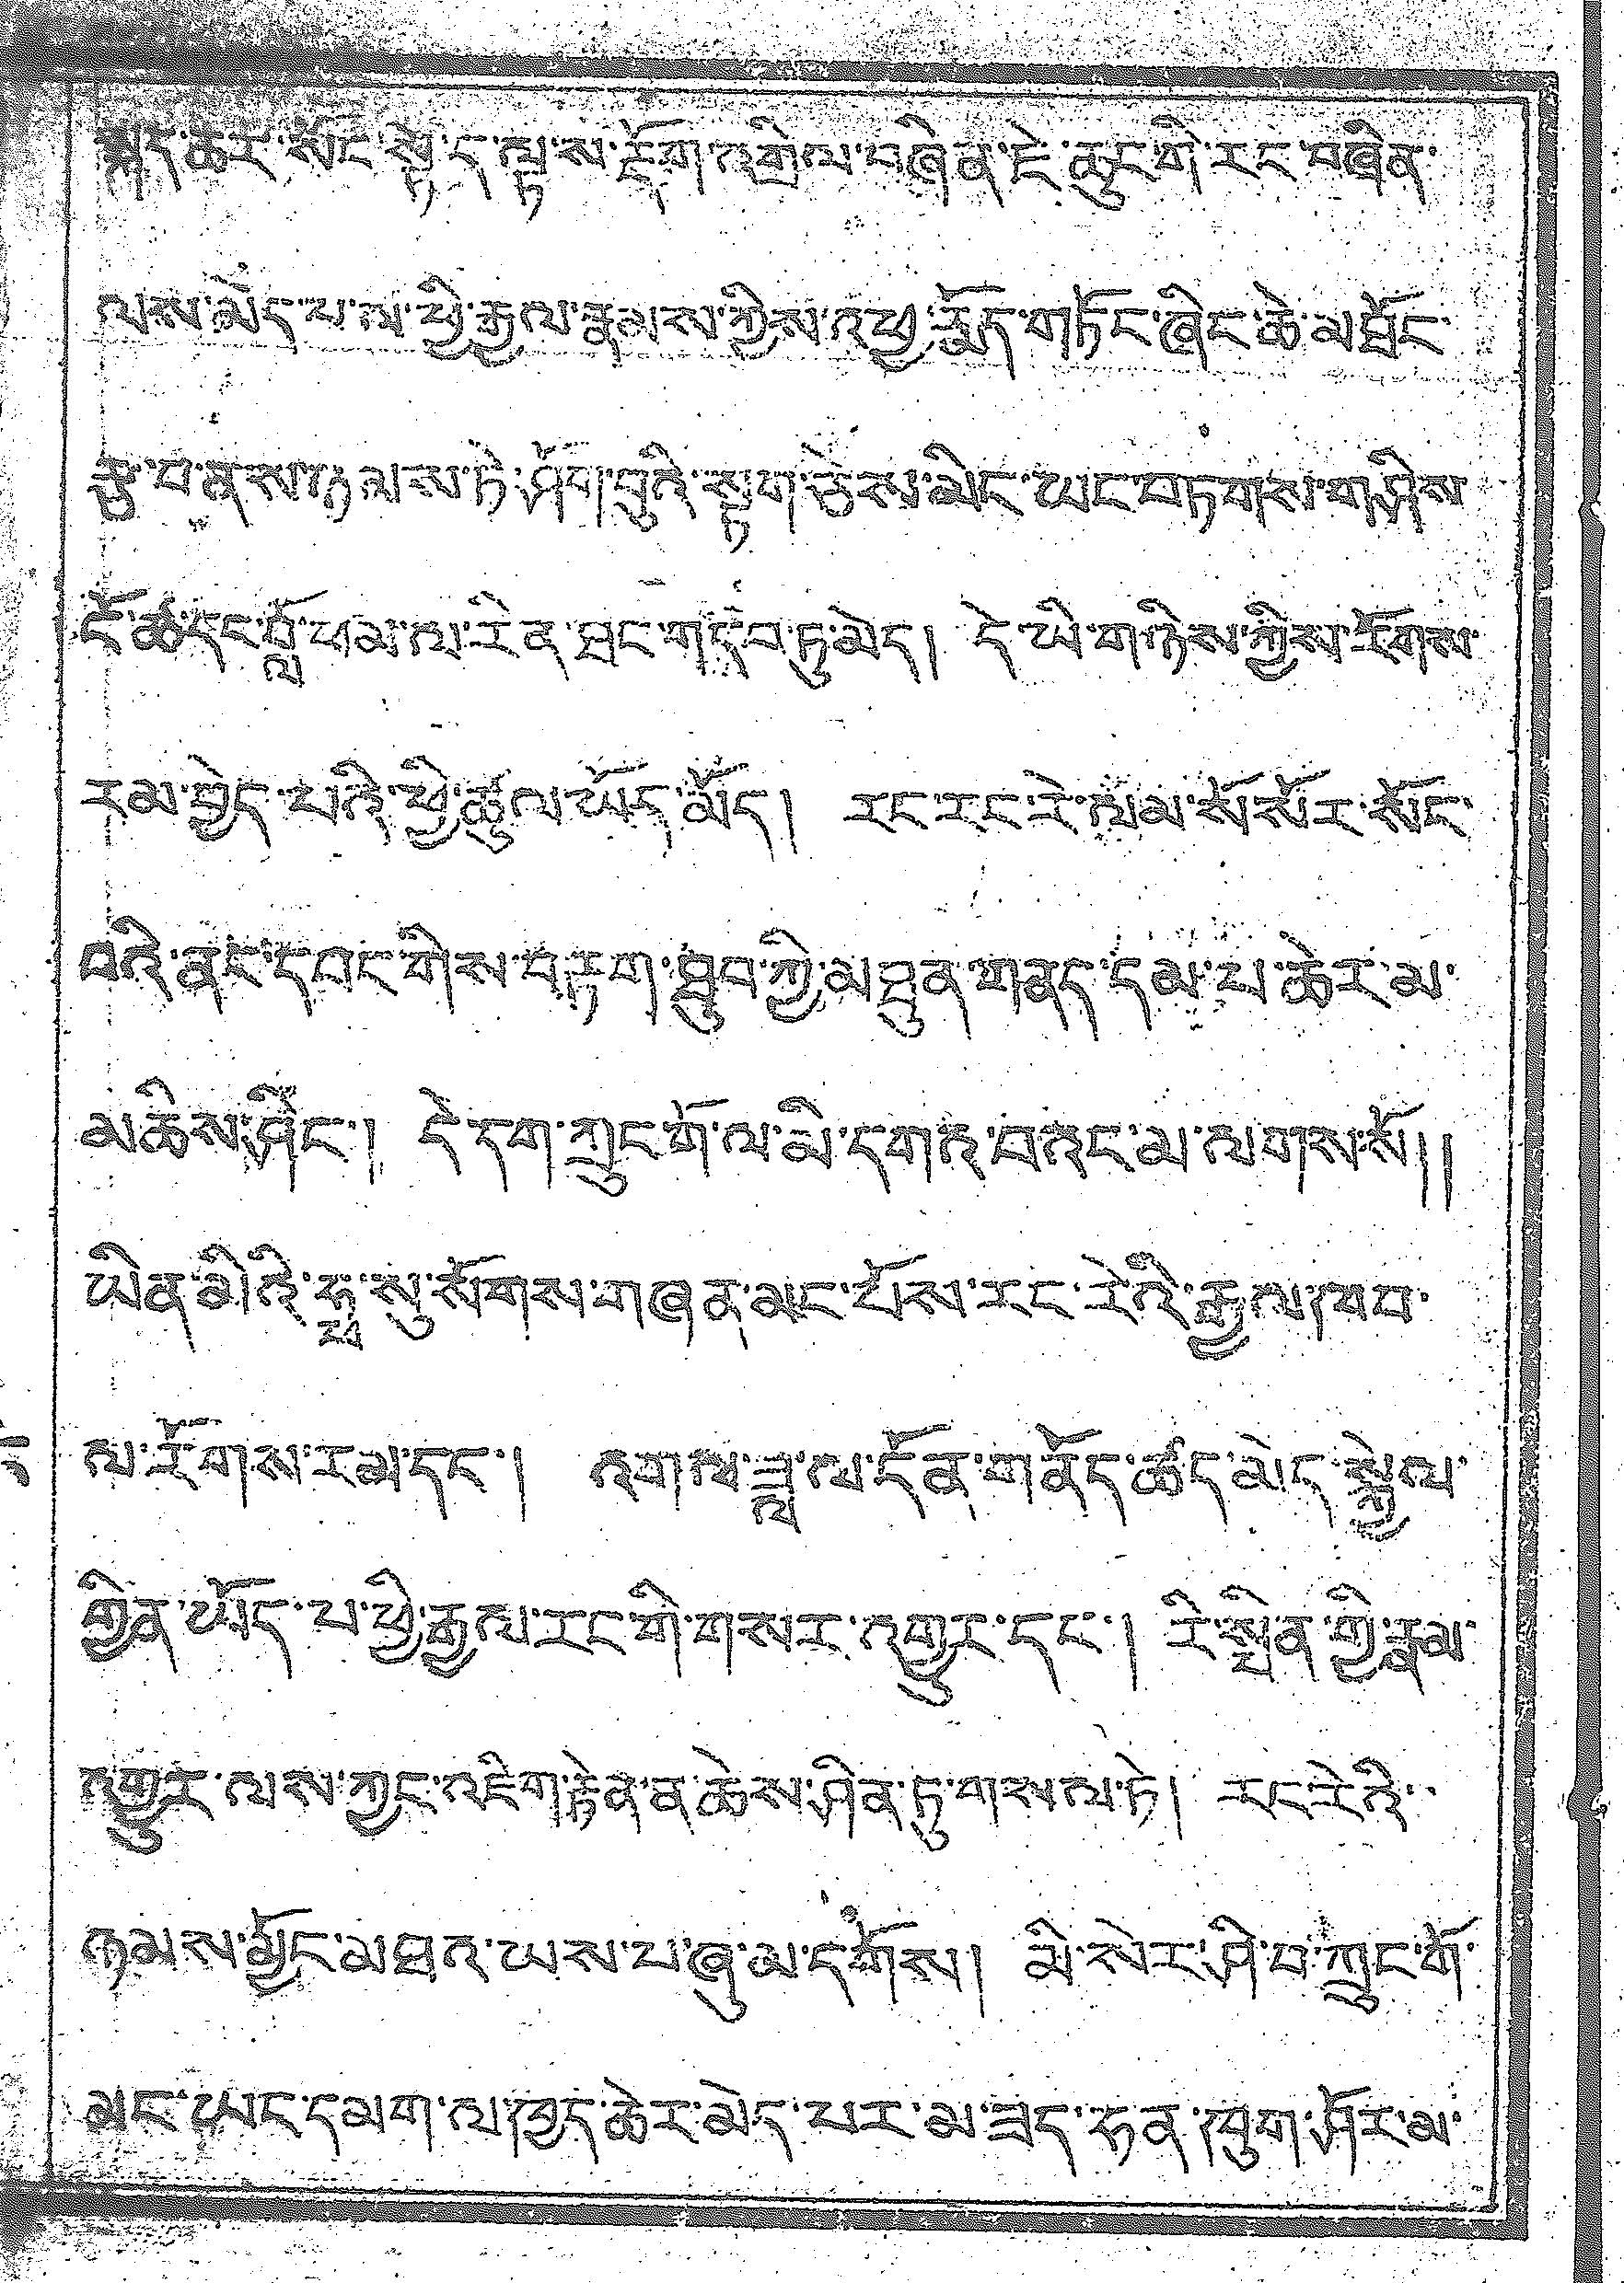 སྐད་ཆར་སོང་སྟེ་ད་ལྟ་ས་རྡོག་འགྲིལ་བཞིན་ཇེ་ཆུང་གི་རང་བཞིན་
ལས་མེད་པ་ལ་ཕྱི་རྒྱལ་རྣམས་ཀྱིས་འཕྱ་རྨོད་གཏོང་ཞིང་ཆེ་མཐོང་
རྒྱ་བ་ནས་ཉམས་ཏེ་ཤོག་བུའི་སྟག་ཅེས་མིང་ཡང་བཏགས་གཤིས་
ངོ་ཚ་དང་བླ་ཕམ་ལ་རིན་ཐང་གདབ་ཏུ་མེད། དེ་ཡི་གཉེས་ཀྱིས་རོགས་
རམ་བྱེད་པའི་ཕྱི་ཚུལ་ཡོད་མོད། རང་རང་རེ་ལམ་སོ་སོར་སོང་
བའི་ནང་དབང་གིས་བརྟག་ཐུབ་ཀྱི་མཐུན་གནད་དམ་པ་ཆེར་མ་
མཆིས་ཤིང་། དེ་དག་ཀྲུང་གོ་ལ་མི་དགའ་བའང་མ་ལགས་སོ།།
ཡིན་མིའི་ཧྥ་སུ་སོགས་གཞན་མང་པོས་རང་རེའི་རྒྱལ་ཁབ་
ལ་རོགས་རམ་དང་། འགལ་ཟླ་ལ་དོན་གནོད་ཚད་མེད་སྐྱེལ་
གྱིན་ཡོད་པ་ཕྱི་རྒྱལ་རང་གི་གསར་འགྱུར་དང་། རི་སྤིན་གྱི་རྣམ་
འགྱུར་ལས་ཀྱང་འཇིག་རྟེན་ན་ཆེས་ཤིན་ཏུ་གསལ་ཏེ། རང་རེའི་
ཉམས་མྱོང་མཐའ་ཡས་པ་ཞུ་མ་དགོས། མི་སེར་ཤི་བ་ཀྲུང་གོ་
མང་ཡང་དམག་ལ་ཁྱད་ཆེར་མེད་པར་མ་ཟད་ཧན་ཁུག་ཤོར་མ་